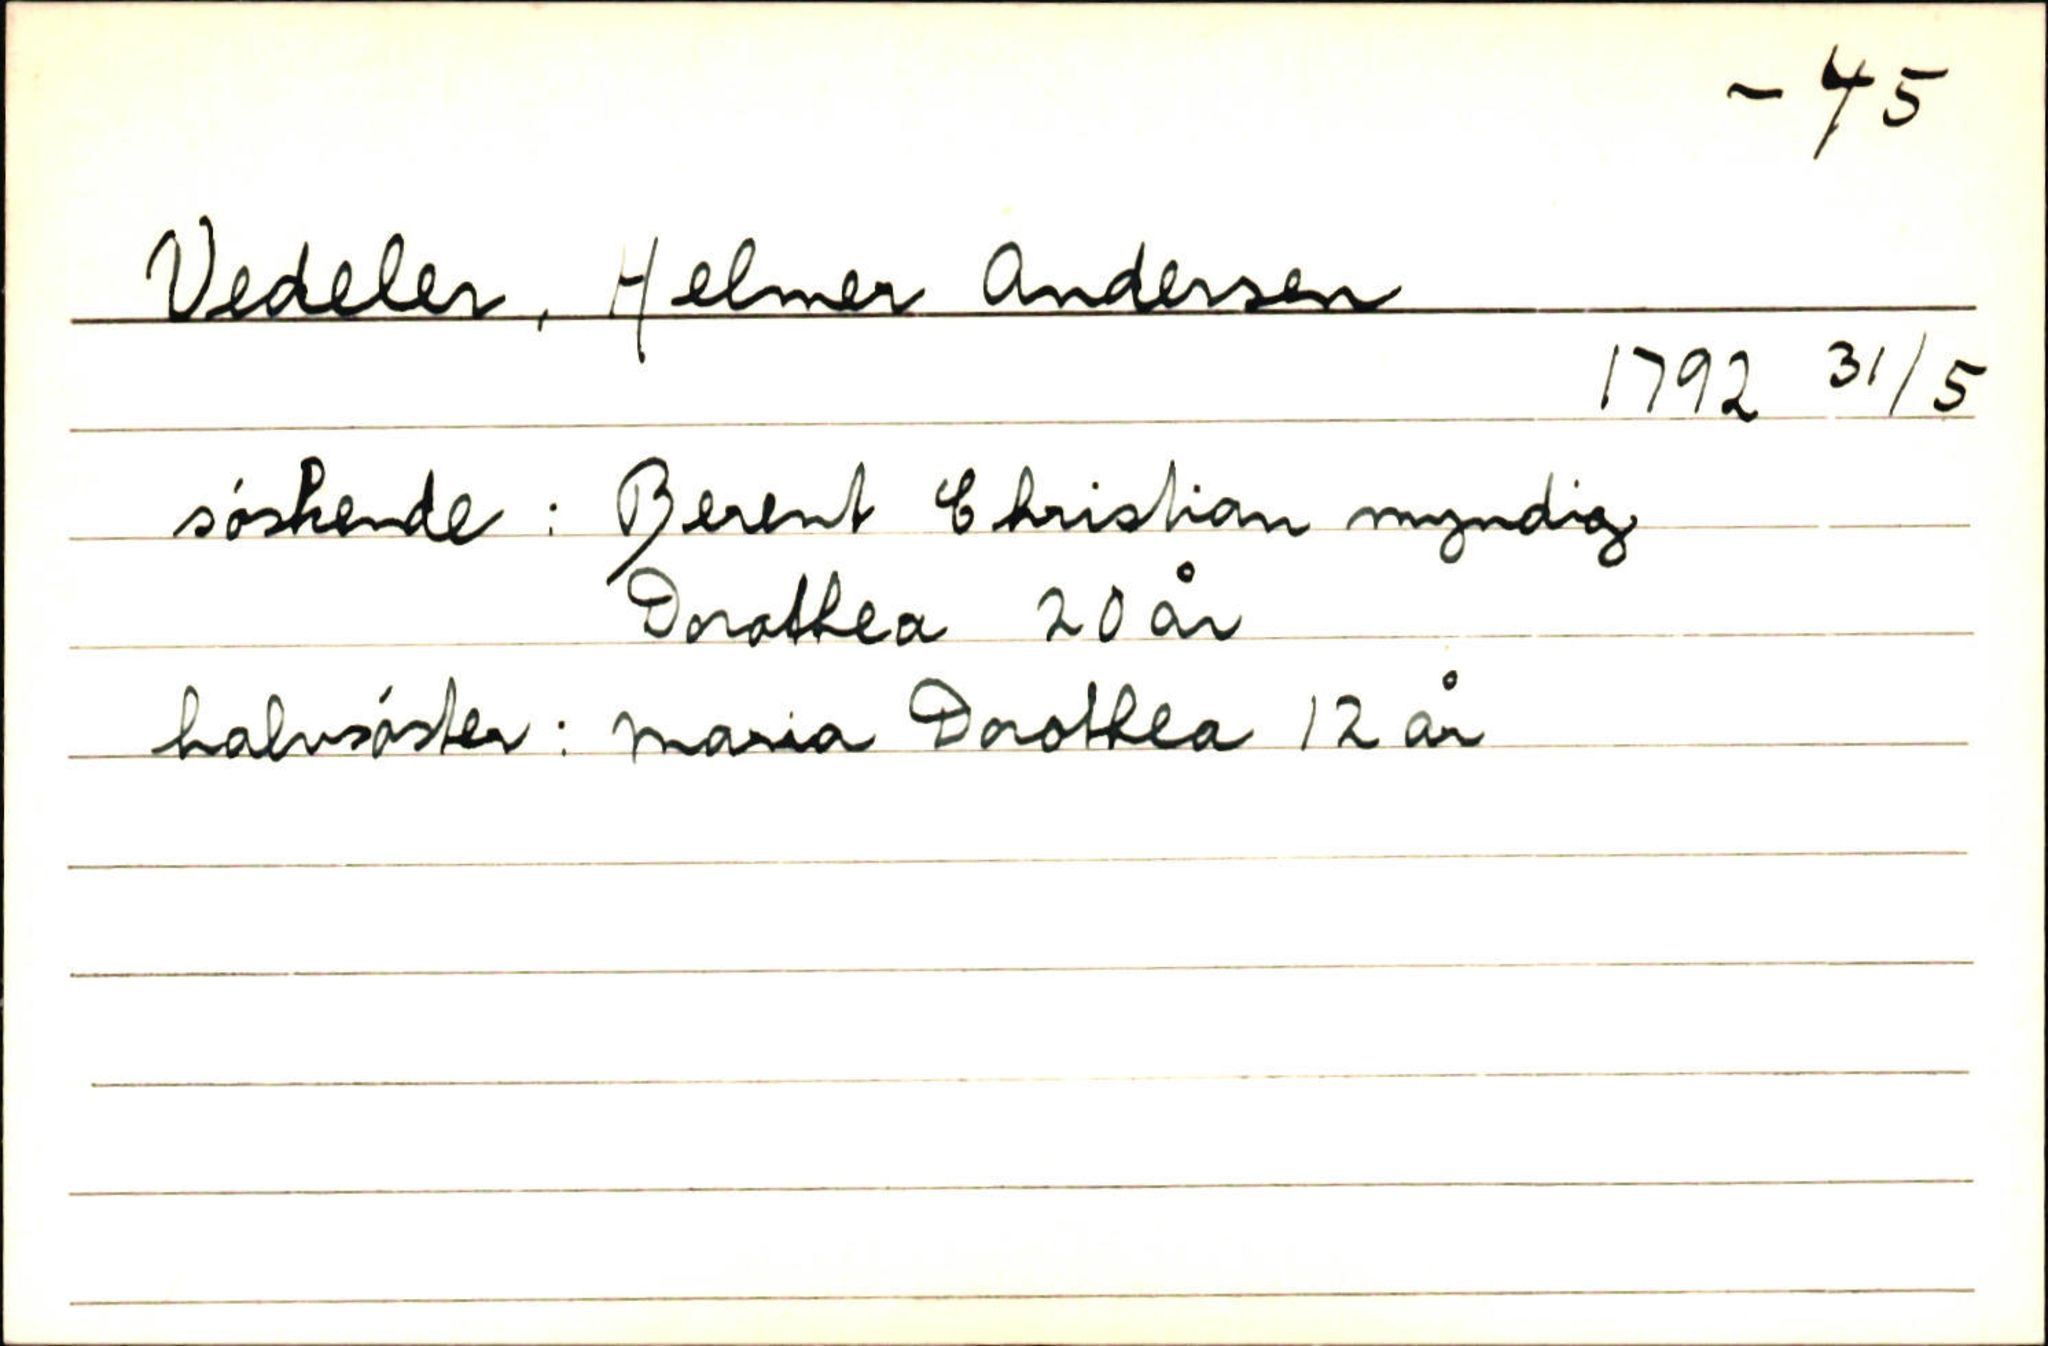 - 45
Vedeler, Helmer Andersen
1792 31/5
søskende : Berent Christian myndig
Dorothea 20 år
halvsøster : Maria Dorothea 12 år